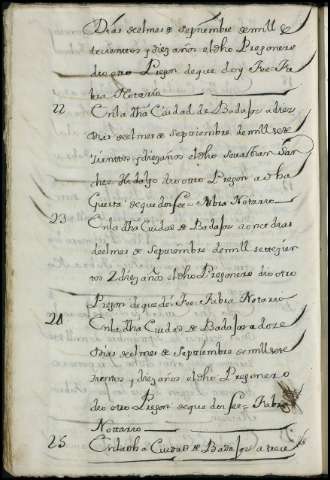 Dias del mes de septiembre de mill Se
tecientos y diez años el dho Pregonero
dio otro Pregon de que doy Fee = Fa
bia Notario
22 En la dha Ciudad de Badajoz a diez
dias del mes de Septiembre de mill sete
cientos y diez años el dho Sevastian San
chez Hidalgo dio otro Pregon a dha
de que doy fee = Rabia Notario
23 En la dha Ciudad de Badajoz a onze dias
del mes de Septiembre de mill settezien
tos y diez años el dho Pregonero dio otro
Pregon de que doy Fee = Rabia Notario
24 En la dha Ciudad de Badajoz a doze
dias del mes de Septiembre de mill sete
cientos y diez años el dho Pregonero
dio otro Pregon de que doy fee = Rabia
Nottario
25 En la dha Ciudad de Badajoz a trece